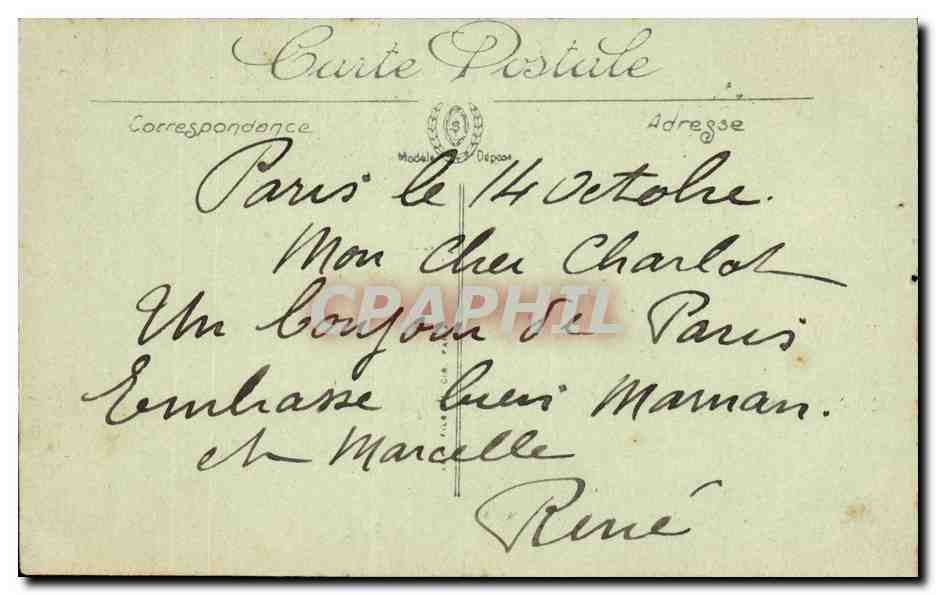 Carte Postale
Correspondance
Adresse
Modèle Déposé
Paris le 14 Octobre.
Mon Cher Charlot
CPAPHIL
Un bonjour de Paris
Embrasse bien Maman.
et Marcelle
René